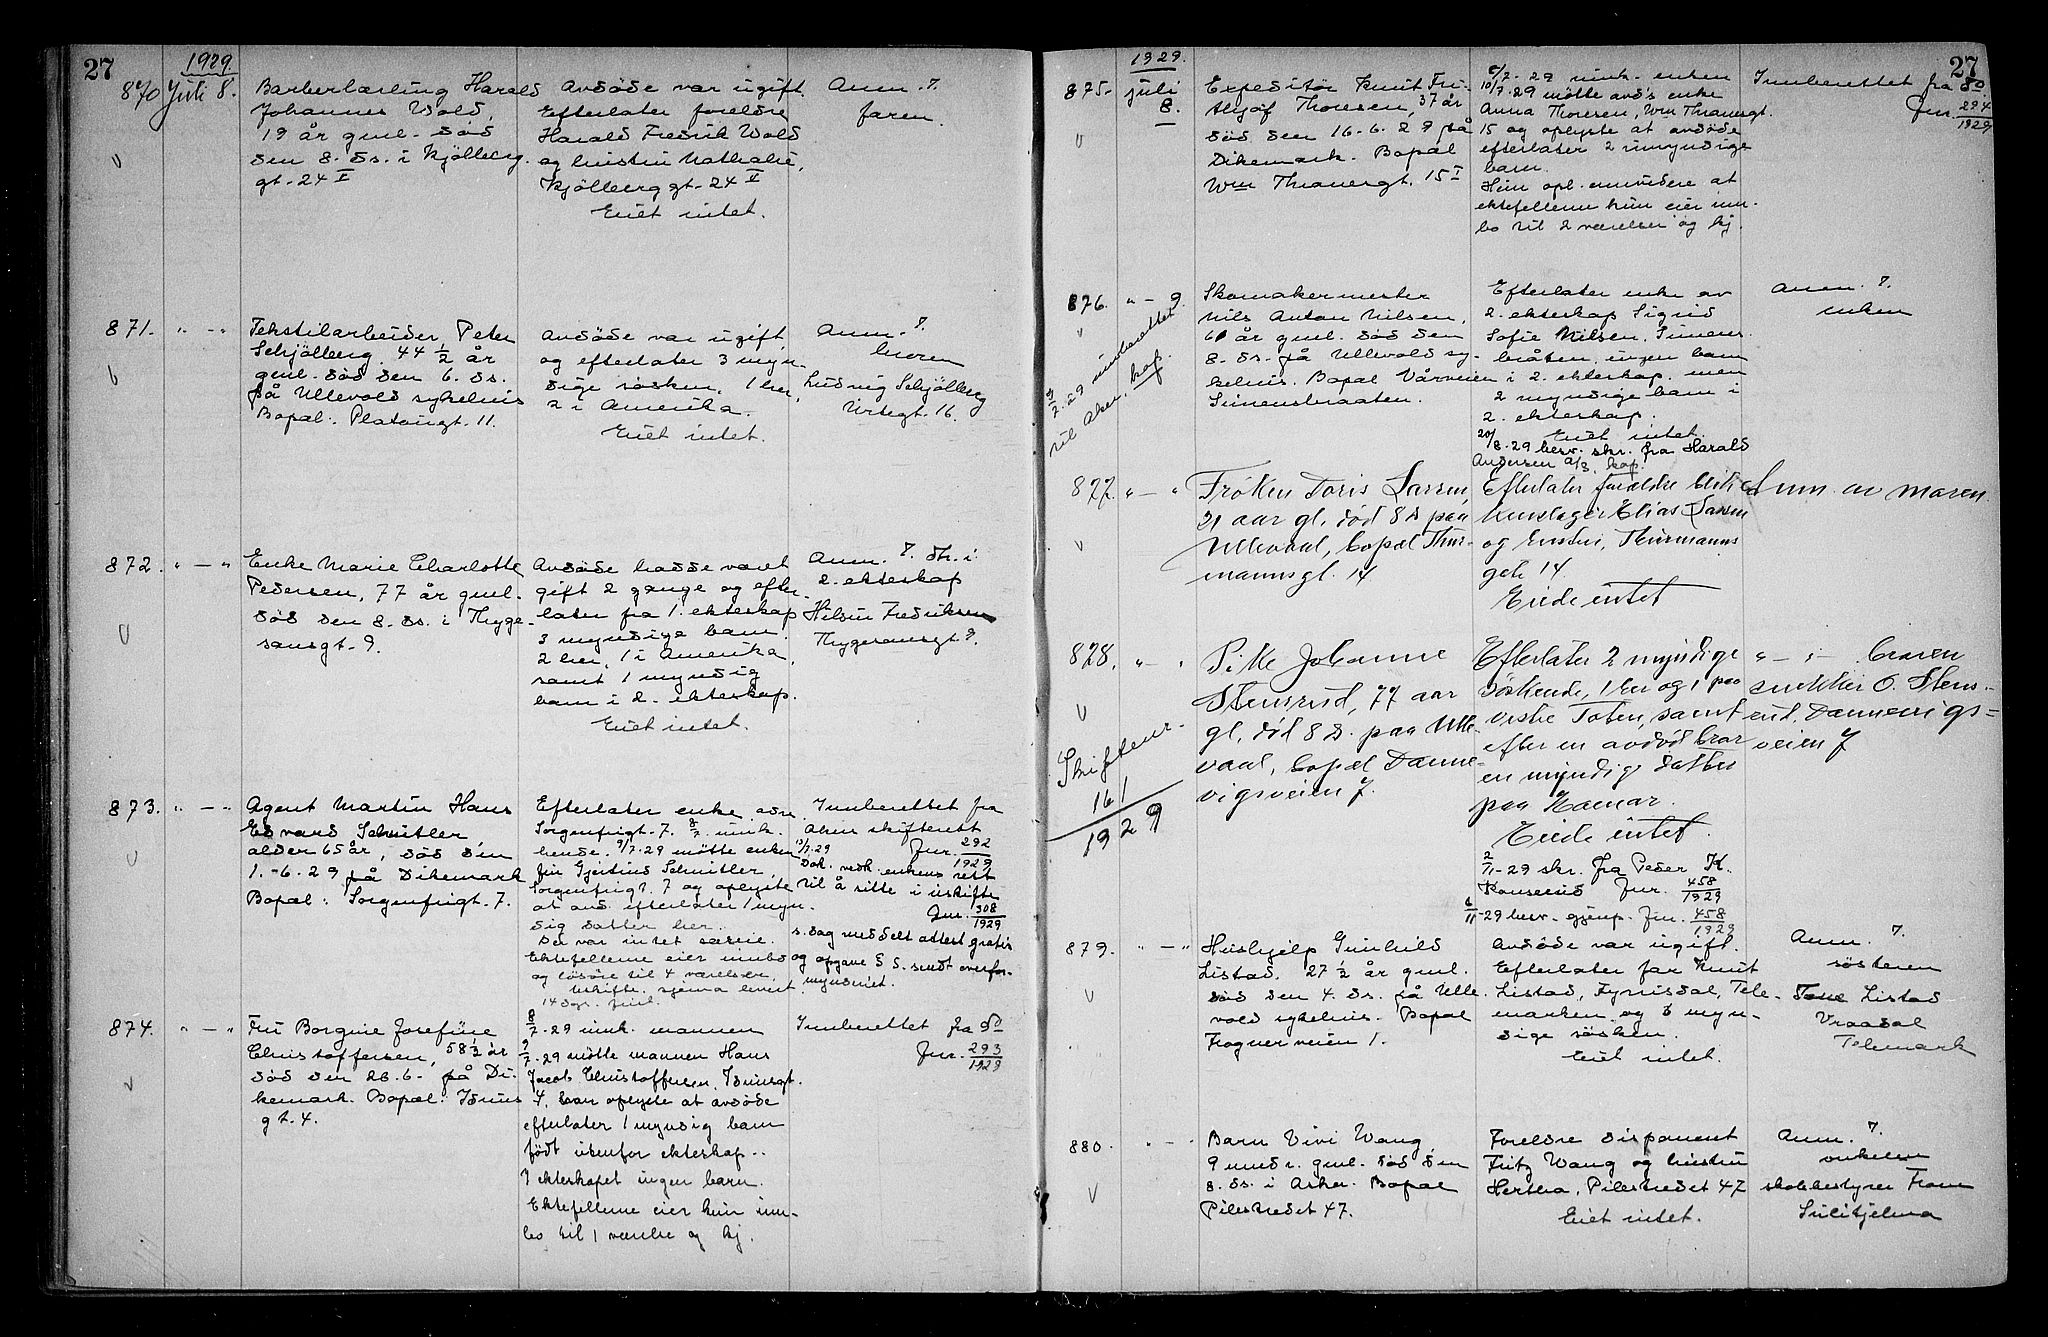 27
1929.
870 Juli 8.
Barberlærling Harald
Johannes Wold,
19 år gml. död
den 8. ds. i Kjölberg.
gt. 24 I
Avdöde var ugift.
Efterlater foreldre
Harald Fredrik Wold
og hustru Nathalie,
Kjölberggt. 24 V
Eiet intet.
Anm. 7.
faren.
871. " - "
Tekstilarbeider Peter
Schjölberg 44 1/2 år
gml. död den 6. ds.
på Ullevold sykehus
Bopel: Platougt. 11.
Avdöde var ugift
og efterlater 3 myn-
dige søsken, 1 her,
2 i Amerika.
Eiet intet.
Anm. 7.
broren
Ludvig Schjölberg
Urtegt. 16
872. " - "
Enke Marie Charlotte
Pedersen, 77 år gml.
död den 8. ds. i Thyge-
sonsgt. 9.
Avdöde hadde været
gift 2 gange og efter-
later fra 1. ekteskap
3 myndige barn.
2 her, 1 i Amerika,
samt 1 myndig
barn i 2. ekteskap.
Eiet intet.
Anm. 7. dtr. i
2. ekteskap
Fredriksen
Thygesonsgt. 9.
873. " - "
Agent Martin Hans
Edvard Schnitler
alder 65 år, död den
1.-6.29 på Dikemark
Bopel: Sorgenfrigt. 7.
Efterlater enke adr.
Sorgenfrigt. 7. 8/7. innk.
hende. 9/7.29 mötte enken
fru Gjertine Schnitler,
Sorgenfrigt. 7 og oplyste
at avd. efterlater 1 myn-
dig datter her.
Der var intet særeie.
Ektefellene eier innbo
og lösöre til 4 værelser.
Uskifte. sjema levert.
14 dgr. frist.
Innberettet fra
Aker skifterett
Jnr. 292/1929
13/7.29
Dok. vedk. enkens rett
til å sitte i uskifte
Jnr. 308/1929
s. dag meddelt attest gratis
og opgave § 5. sendt overfor-
mynderiet.
874. " - "
Fru Borgine Josefine
Christoffersen, 58 1/2 år
död den 26.6. på Di-
kemark. Bopel: Iduns
gt. 4.
8/7-29 innk. mannen
9/7-29 mötte mannen Hans
Jacob Christoffersen, Idunsgt.
4, han oplyste at avdöde
efterlater 1 myndig barn
født utenfor ekteskap..
I ekteskapet ingen barn.
Ektefellene eier kun inn-
bo til 1 værelse og kj.
Innberettet fra do
Jnr. 293/1929
27
1929.
875- juli
8.
Expeditör Knut Fri-
thjof Thoresen, 37 år
död den 16-6.29 på
Dikemark. Bopel
Wm Thranesgt. 15 I
9/7-29 innk. enken
10/7.29 mötte avd's enke
Anna Thoresen, Wm Thranesgt.
15 og oplyste at avdöde
efterlater 2 umyndige
barn.
Hun opl. envidere at
ektefellene kun eier inn-
bo til 2 værelser og kj.
Innberettet fra do
Jnr. 294/1929
876. " - 9.
9/7-29 innberettet
til Aker, kap.
Skomakermester
Nils Anton Nilsen,
61 år gml. död den
8. ds. på Ullevold sy-
kehus. Bopel Vårveien
Simensbraaten.
Efterlater enke av
2. ekteskap Sigrid
Sofie Nilsen, Simens-
bråten, ingen barn
i 2. ekteskap. men
2 myndige barn i
2. ekteskap.
Eiet intet.
20/8-29 besv. skr. fra Harald
Andersen a/s, kap.
Anm. 7.
enken
877. " - "
Frøken Doris Larsen,
21 aar gl. død 8 ds paa
Ullevaal, bopæl Thur-
mannsgt. 14
Efterlater forældre blik-
kenslager Elias Larsen
og hustru, Thurmanns
gate 14.
Eiede intet
Anm. av moren
878. " - "
Skiftejnr.
161
1929
Pike Johanne
Stensrud, 77 aar
gl. død 8 ds. paa Ulle-
vaal, bopæl Danne-
vigsveien 7.
Efterlater 2 myndige
søskende, 1 her og 1 paa
vestre Toten, samt
efter en avdød bror
en myndig datter
paa Hamar.
Eiede intet.
2/11-29 skr. fra Peder K.
Jnr. 458/1929
6/11-29 besv. gjenp. Jnr. 458/1929
" - " - broren
snekker O. Stens-
rud, Dannevigs-
veien 7
879. " - "
Hushjelp Gunhild
Listad. 27 1/2 år gml.
död den 4. ds. på Ulle-
vold sykehus. Bopel
Frognerveien 1.
Avdöde var ugift.
Efterlater far Knut
Listad, Fyrisdal, Tele-
marken og 3 myn-
dige søsken.
Eiet intet.
Anm. 7.
søsteren
Tone Listad
Vraadal
Telemark
880. " - "
Barn Vivi Wang
9 mndr. gml. död den
8. ds. i Asker. Bopel
Pilestredet 47.
Foreldre disponent
Fritz Wang og hustru
Hertha, Pilestredet 47
Eiet intet.
Anm. 7.
onkelen
skobestyrer Fram
Sulitjelma